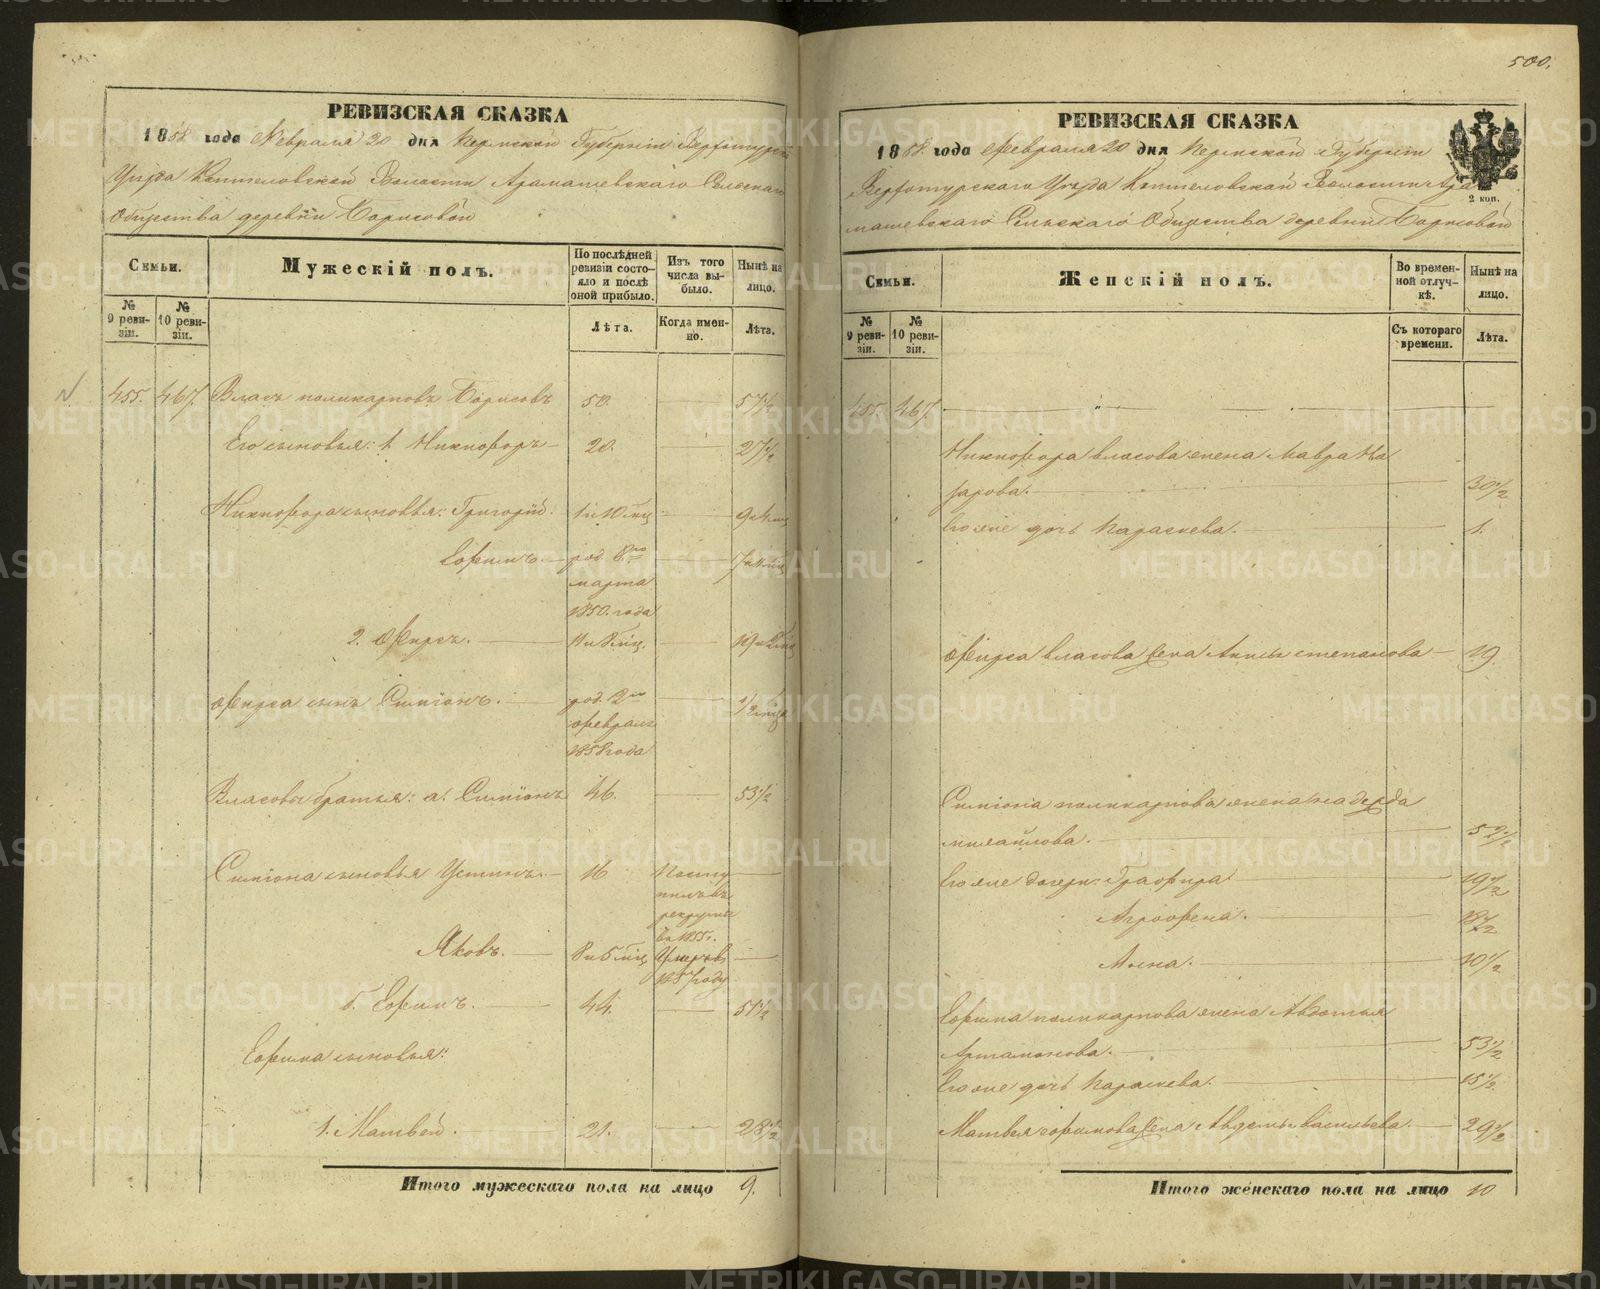 500.
РЕВИЗСКАЯ СКАЗКА
1858 года Февраля 20 дня Пермской Губернiи Верхотурскаго
Уѣзда Коптеловской Волости Арамашевскаго Сельскаго
Общества деревни Борисовой
Семьи.
Мужескiй полъ.
По послѣдней ревизiи состояло и послѣ оной прибыло.
Изъ того числа выбыло.
Нынѣ на лицо.
№ 9 ревизiи.
№ 10 ревизiи.
Лѣта.
Когда именно.
Лѣта.
455. 467. Власъ поликарповъ Борисовъ 50. 57½
Его сыновья: 1. Никифоръ 20. 27½
Никифора сыновья: Григорiй 1 и 10 мѣц 9 и 4 мц
Ефимъ. род. 8го марта 1850. года
2. Фирсъ. 11 и 8 мѣц. 19 и 2 мц
Фирса сынъ Симiонъ. род. 2го февраля 1858 года ½ мца
Власовы братья: а. Симiонъ 46. 53½
Симiона сыновья Устинъ. 16 Поступилъ въ рекруты въ 1855 г.
Яковъ. 8 и 5 мѣц Умеръ въ 1857 году
б. Ефимъ. 44. 51½
Ефима сыновья:
1. Матвей. 21. 28½
Итого мужескаго пола на лицо 9.
РЕВИЗСКАЯ СКАЗКА
1858 года Февраля 20 дня Пермской Губернiи
Верхотурскаго Уѣзда Коптеловской Волости Ара
машевскаго Сельскаго Общества деревни Борисовой
2 коп.
Семьи.
Женскiй полъ.
Во временной отлучкѣ.
Нынѣ на лицо.
№ 9 ревизiи.
№ 10 ревизiи.
Съ котораго времени.
Лѣта.
455. 467.
Никифора власова жена Мавра На
зарова. 30½
Его же дочь Параскева. 1.
Фирса власова жена Анна степанова 19
Симiона поликарпова жена надежда
михайлова. 52½
Его же дочери: Графира 19½
Агрофена. 18½
Анна. 10½
Ефима поликарпова жена Авдотья
Артамонова. 53½
Его же дочь Параскева. 15½
Матвея ефимова жена васильева. 29½
Итого женскаго пола на лицо 10
METRIKI.GASO-URAL.RU